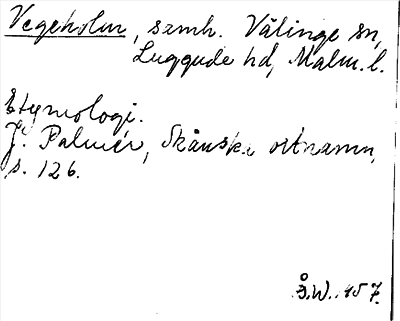 Vegeholm, szmh. Välinge sn,
Luggude hd, Malm. l.
Etymologi.
J. Palmér, Skånska ortnamn,
s. 126.
G.W. 157.